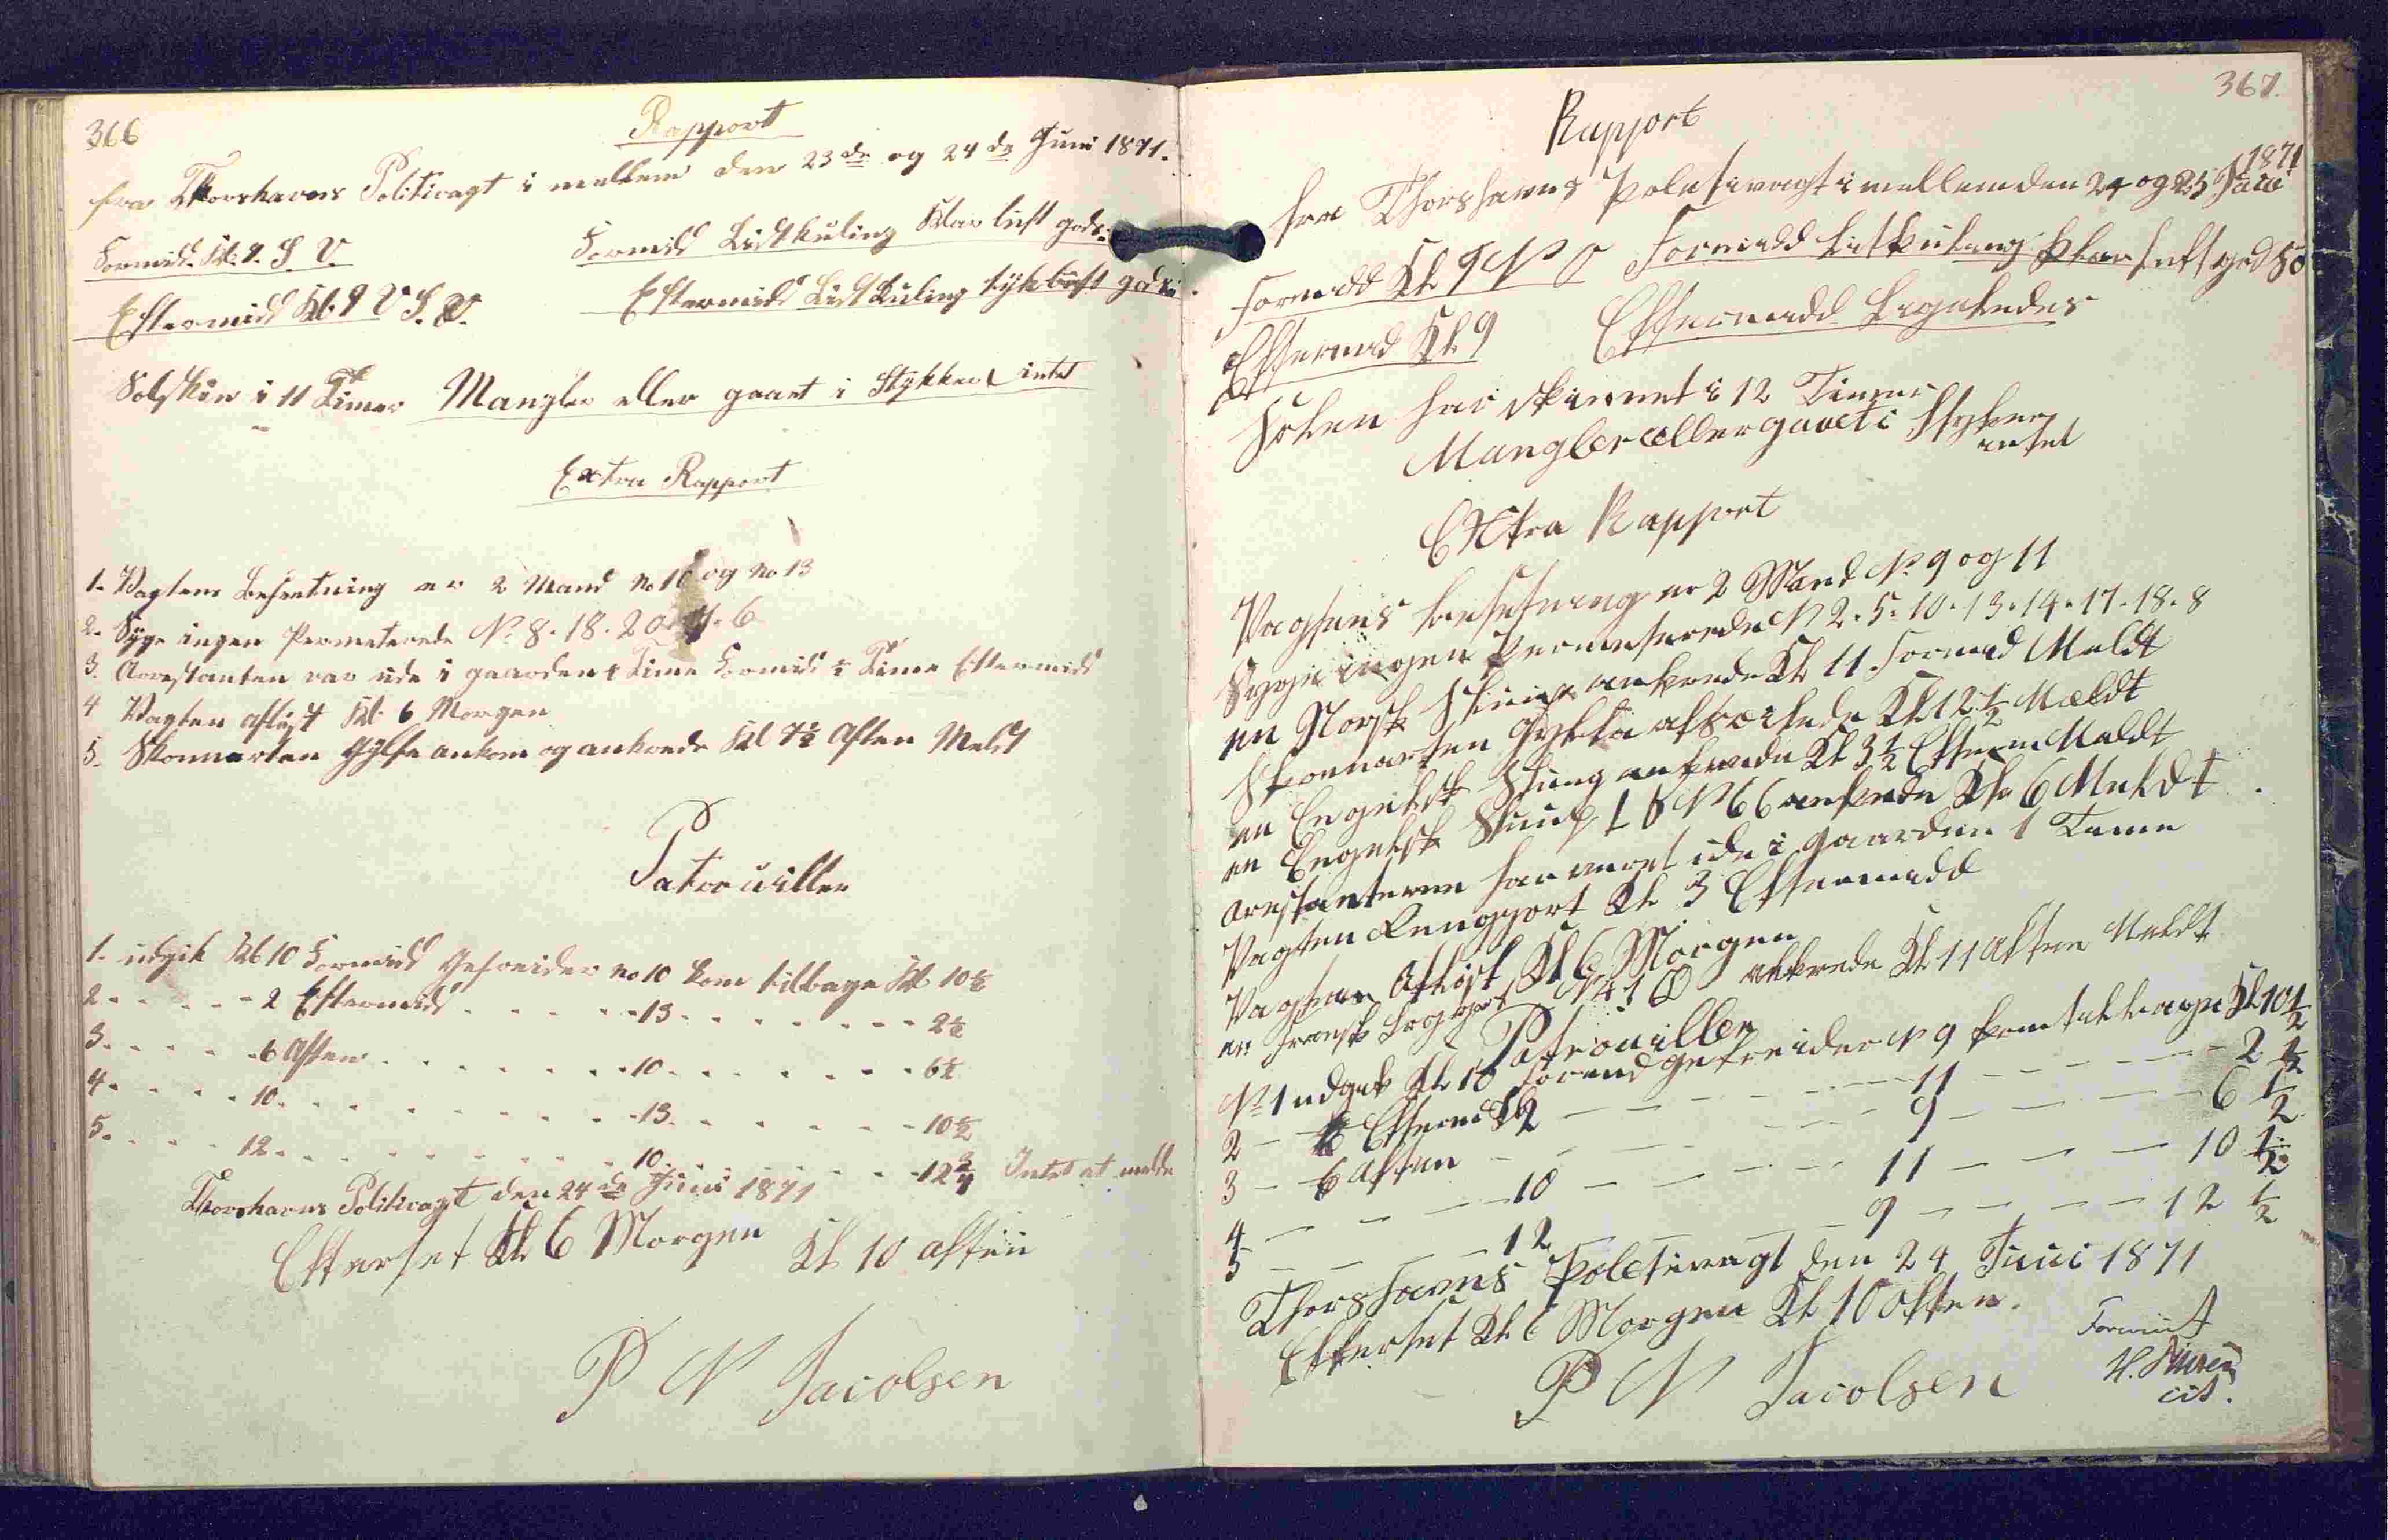 366
Rapport
fra Thorshavns Politivagt i mellem den 23de og 24de Juni 1871.
Formidd. Kl: 9. S. V.
Formidd Lidt Kuling Klar luft god
Eftermidd Kl. 9 V S. V.
Eftermidd Lidt Kuling tyk luft god
Solskin i 11 Timer Mangler eller gaaet i Stykker intet
Extra Rapport
1. Vagtens Besætning er 2 Mand No 10 og No 13
2. Syge ingen Permeterede No 8. 18. 20. 6
3. Arrestanten var ude i gaarden Time Formidd ½ Time Eftermidd
4 Vagten afløst Kl. 6 Morgen
5. Skonnarten Gylfe ankom og ankrede Kl 7½ Aften Meldt
Patrouiller
1. udgik Kl 10 Formidd Gefreider No 10 kom tilbage Kl 10½
2 - - - - - 2 Eftermidd - - - - - 13 - - - - - - - 2½
3. - - - - - 6 Aften - - - - - - 10 - - - - - - - 6½
4. - - - - 10 - - - - - - - - - 13 - - - - - - 10½
5. - - - - 12 - - - - - - - - - 10 - - - - - - 12¾ Intet at melde
Thorshavns Politivagt den 24de Juni 1871
Efterset Kl 6 Morgen Kl 10 aften
P N Jacobsen
367.
Rapport
fra Thorshavns Poletivagt i mellem den 24 og 25 Juni 1871
Formidd Kl 9 N O Formidd Lidt kuling klar luft god
Eftermid Kl 9 Eftermidd Ligeledes
Solen har skinnet i 12 Timer
Mangler eller gaaet i Stykker
intet
Extra Rapport
Vagtens besetning er 2 Mand No 9 og 11
Syge ingen Permeterede N 2. 5. 10. 13. 14. 17. 18. 8
en Norsk Slup ankrede Kl 11 Formid Meldt
Skonnarten Gylfa afseilede Kl 12½ Meldt
en Engelsk Slup ankrede Kl 3½ Efterm Meldt
en Engelsk Slup L N 66 ankrede Kl 6 Meldt
arestanterne har veret ude i Gaarden 1 Time
Vagten Rengjort Kl 3 Eftermidd
Vagten Afløst Kl 6 Morgen
en Fransk Logger N 41 D ankrede Kl 11 Aften Meldt
Patrouiller
No 1 udgik Kl 10 Formd gefreider N 9 kom tilbage Kl 10½
2 - Eftermd 2 - - - - - 11 - - - - - 2½
3 - 6 Aften - - - - - 9 - - - - - 6½
4 - - - 10 - - - - - 11 - - - 10½
5 - - - 12 - - - - - 9 - - - - 12½
Thorshavns Poletivagt den 24 Juni 1871
Efterset Kl 6 Morgen Kl 10 Aften.
P N Jacobsen